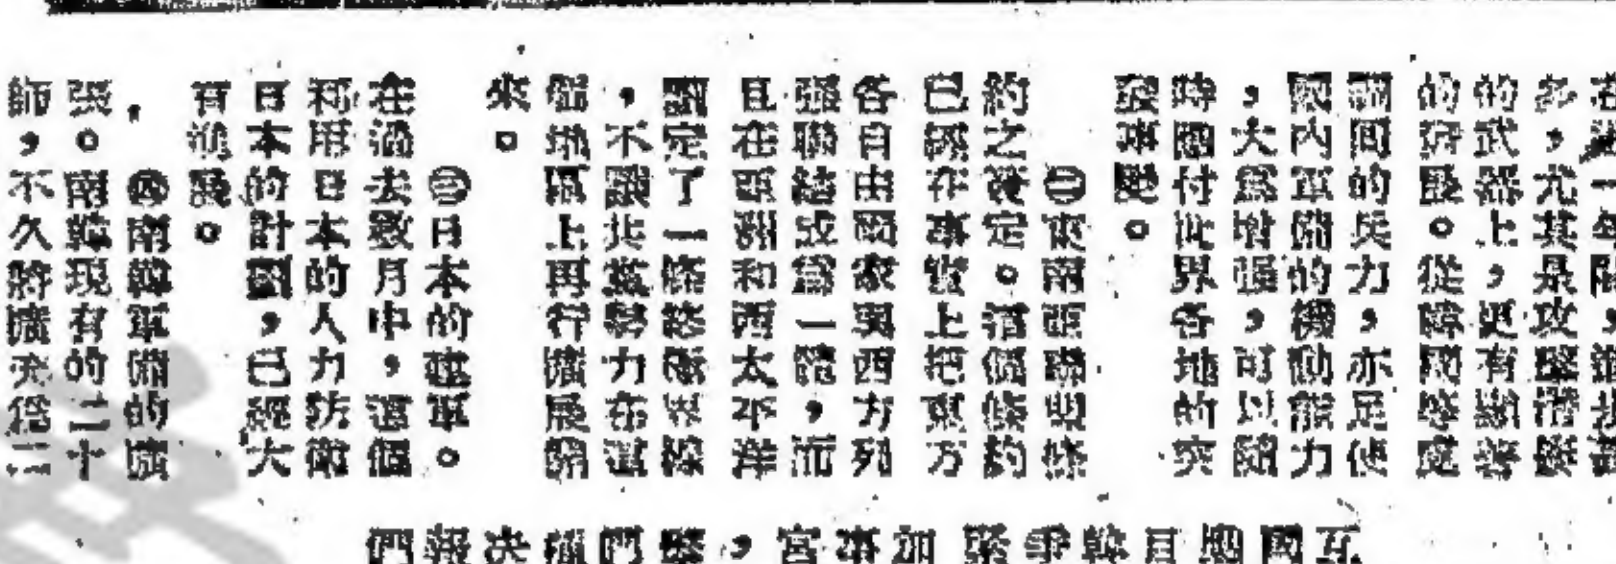 在過一年間，
多，尤其是攻擊潛艇
的武器上，更有顯著
的發展。從韓國
調回的兵力，亦足使
國內軍備的機動能力
，大為增强，可以隨
時應付世界各地的突
發事變。
㊁東南亞聯盟條
約之簽定。這個條約
已經在事實上把東方
各自由國家與西方列
强聯結成為一體，而
且在亞洲和西太平洋
劃定了一條終極界線
，不讓共黨勢力在這
個地區上再行擴展開
來。
㊂日本的建軍。
在過去數月中，這個
利用日本的人力防衛
日本的計劃，已經大
有進展。
㊃南韓軍備的擴
張。南韓現有的二十
師，不久將擴充爲二
互國
地
且韓爭
緊
加
事
宮，
們
稱
決
報
們